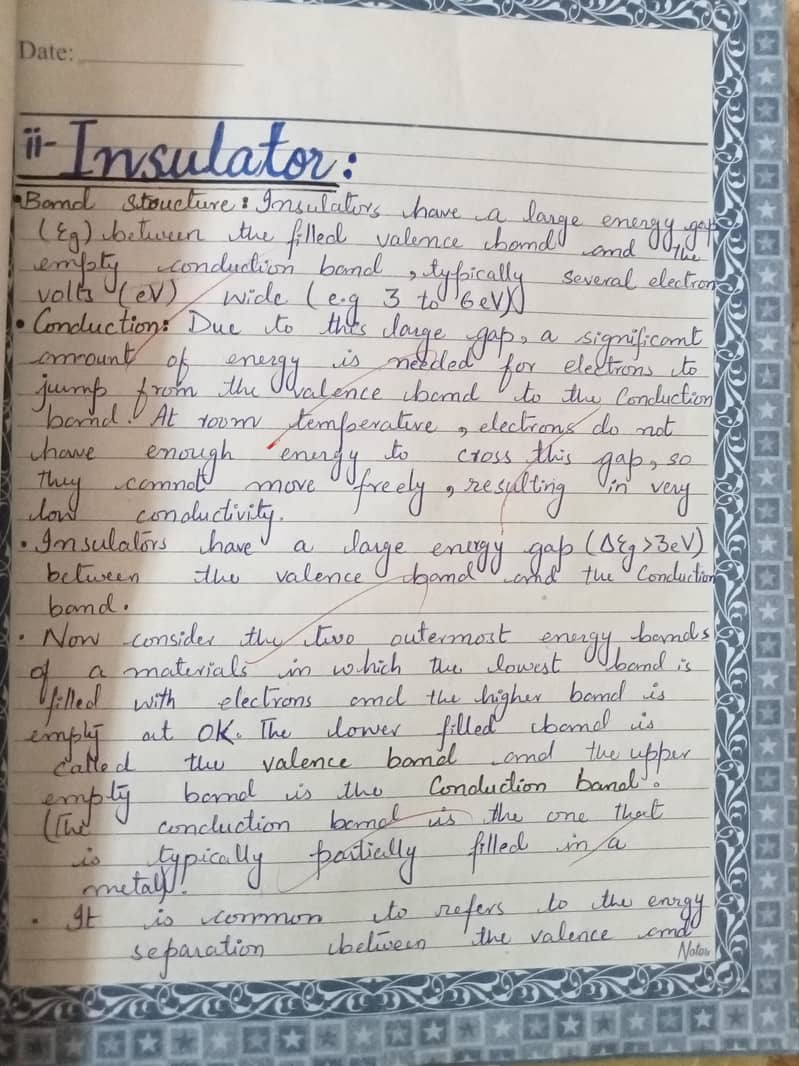 Date:
ii- Insulator:
• Band structure: Insulators have a large energy gap
(Eg) between the filled valence band and the
empty conduction band, typically several electron
volts (eV) wide (e.g 3 to 6eV)
• Conduction: Due to this large gap, a significant
amount of energy is needed for electrons to
jump from the valence band to the Conduction
band. At room temperature, electrons do not
have enough energy to cross this gap, so
they cannot move freely, resulting in very
low conductivity.
• Insulators have a large energy gap (ΔEg>3eV)
between the valence band and the Conduction
band.
• Now consider the two outermost energy bands
of a materials in which the lowest band is
filled with electrons and the higher band is
empty at 0K. The lower filled band is
called the valence band and the upper
empty band is the Conduction band.
(The conduction band is the one that
is typically partially filled in a
metal).
• It is common to refers to the enrgy
separation between the valence and
Notes